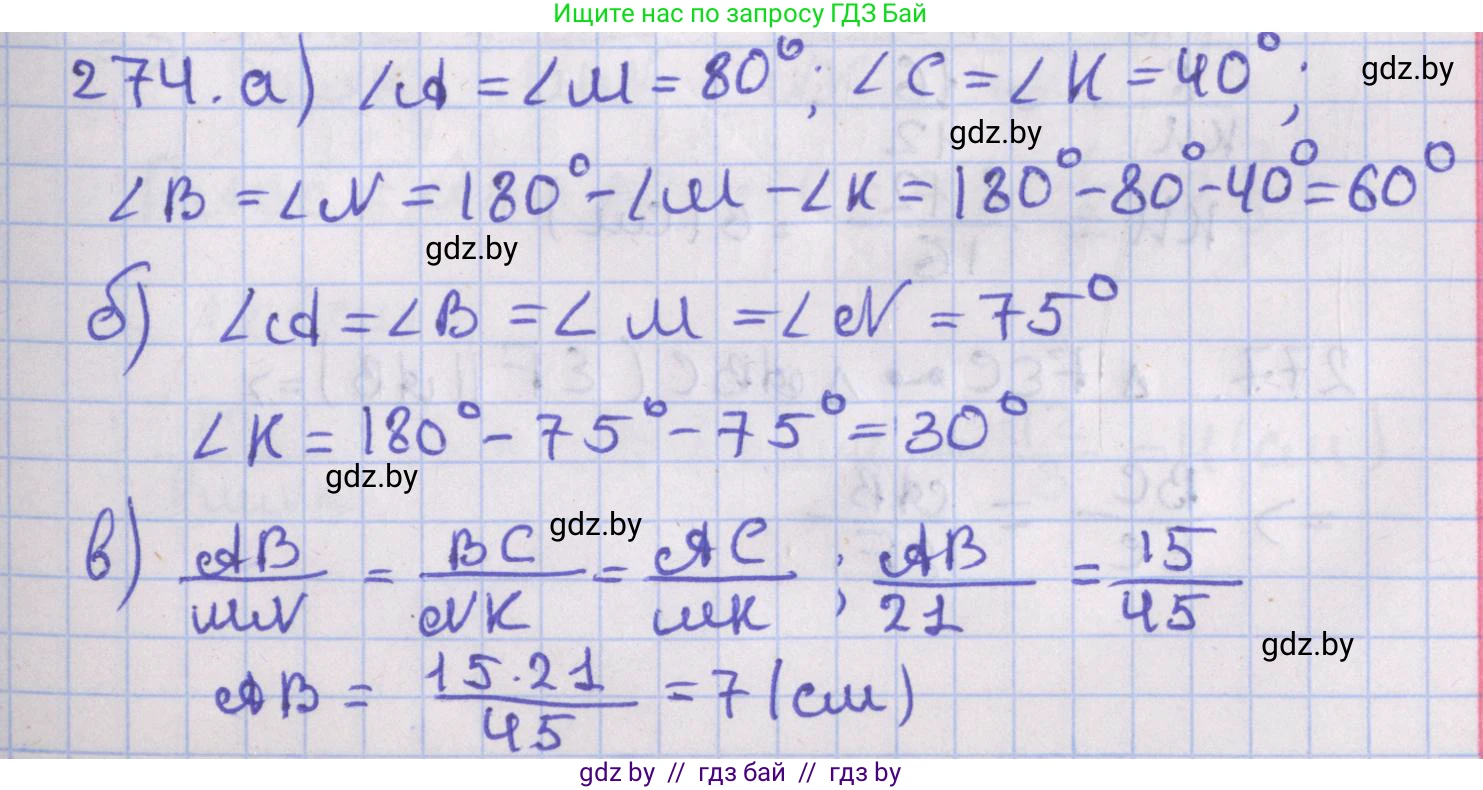 Ищите нас по запросу ГДЗ Бай
274. а) ∠A = ∠M = 80°; ∠C = ∠K = 40°;
gdz.by
gdz.by
∠B = ∠N = 180° - ∠M - ∠K = 180° - 80° - 40° = 60°
gdz.by
б) ∠A = ∠B = ∠M = ∠N = 75°
∠K = 180° - 75° - 75° = 30°
gdz.by
gdz.by
в) AB/MN = BC/NK = AC/MK ; AB/21 = 15/45
gdz.by
AB = 15·21/45 = 7 (см)
gdz.by // гдз бай // гдз by